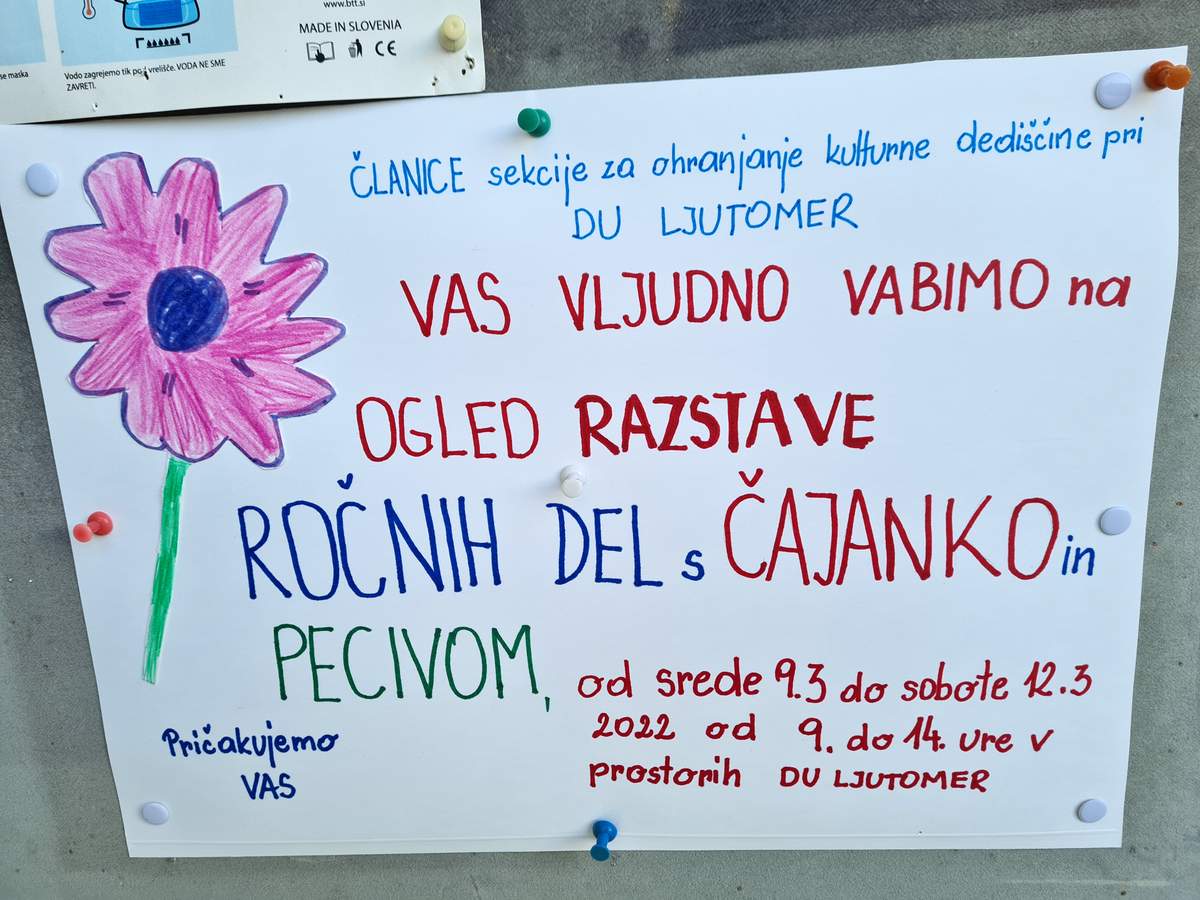 www.btt.si
MADE IN SLOVENIA
CE
se maska
Vodo zagrejemo tik pod vrelišče. VODA NE SME
ZAVRETI.
ČLANICE sekcije za ohranjanje kulturne dediščine pri
DU LJUTOMER
VAS VLJUDNO VABIMO na
OGLED RAZSTAVE
ROČNIH DEL s ČAJANKO in
PECIVOM,
od srede 9.3 do sobote 12.3
2022 od 9. do 14. ure v
prostorih DU LJUTOMER
Pričakujemo
VAS